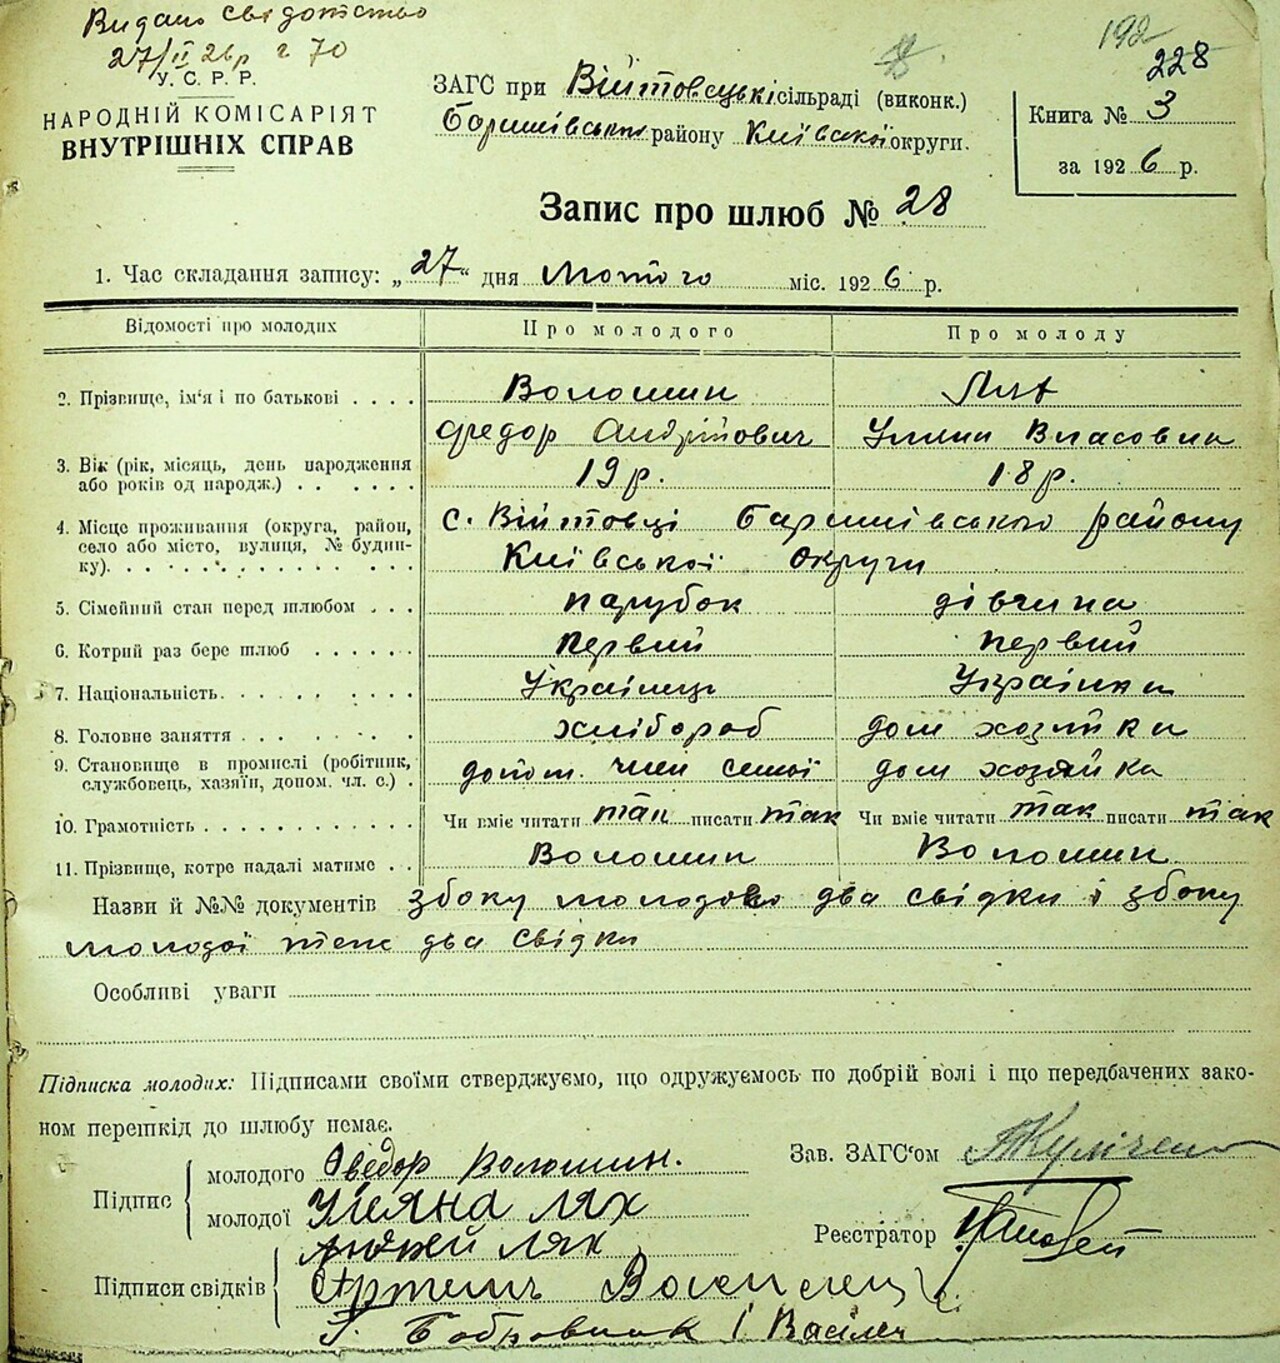 Видано свідотство
27/II 26р г 70
192
228
У. С. Р. Р.
НАРОДНІЙ КОМІСАРІЯТ
ВНУТРІШНІХ СПРАВ
ЗАГС при Війтовецькі сільраді (виконк.)
Баришівського району Київської округи.
Книга № 3
за 1926 р.
Запис про шлюб № 28
1. Час складання запису: „27“ дня Лютого міс. 1926 р.
Відомості про молодих Про молодого Про молоду
2. Прізвище, ім‘я і по батькові . . . . Волошин Лях
Федор Андрійович Уляна Власовна
3. Вік (рік, місяць, день народження
або років од народж.) . . . . . . 19 р. 18 р.
4. Місце проживання (округа, район, с. Війтовці Баришівського району
село або місто, вулиця, № будин-
ку). . . . . . . . . . . . . . Київської округи
5. Сімейний стан перед шлюбом . . . парубок дівчина
6. Котрий раз бере шлюб . . . . . . первий первий
7. Національність. . . . . . . . . . Українець Українка
8. Головне заняття . . . . . . . . хлібороб дом хозяйка
9. Становище в промислі (робітник,
службовець, хазяїн, допом. чл. с.) . допом. член семьї дом хозяйка
10. Грамотність . . . . . . . . . . . . Чи вміє читати так писати так Чи вміє читати так писати так
11. Прізвище, котре надалі матиме . . Волошин Волошин
Назви й №№ документів збоку молодого два свідки і збоку
молодої теж два свідки
Особливі уваги
Підписка молодих: Підписами своїми стверджуємо, що одружуємось по добрій волі і що передбачених зако-
ном перешкід до шлюбу немає.
Підпис
молодого Фведор Волошин.
молодої Уляна Лях
Зав. ЗАГС‘ом
Реєстратор
Підписи свідків
Андрей Лях
Артемъ
Бобровник І Васілец